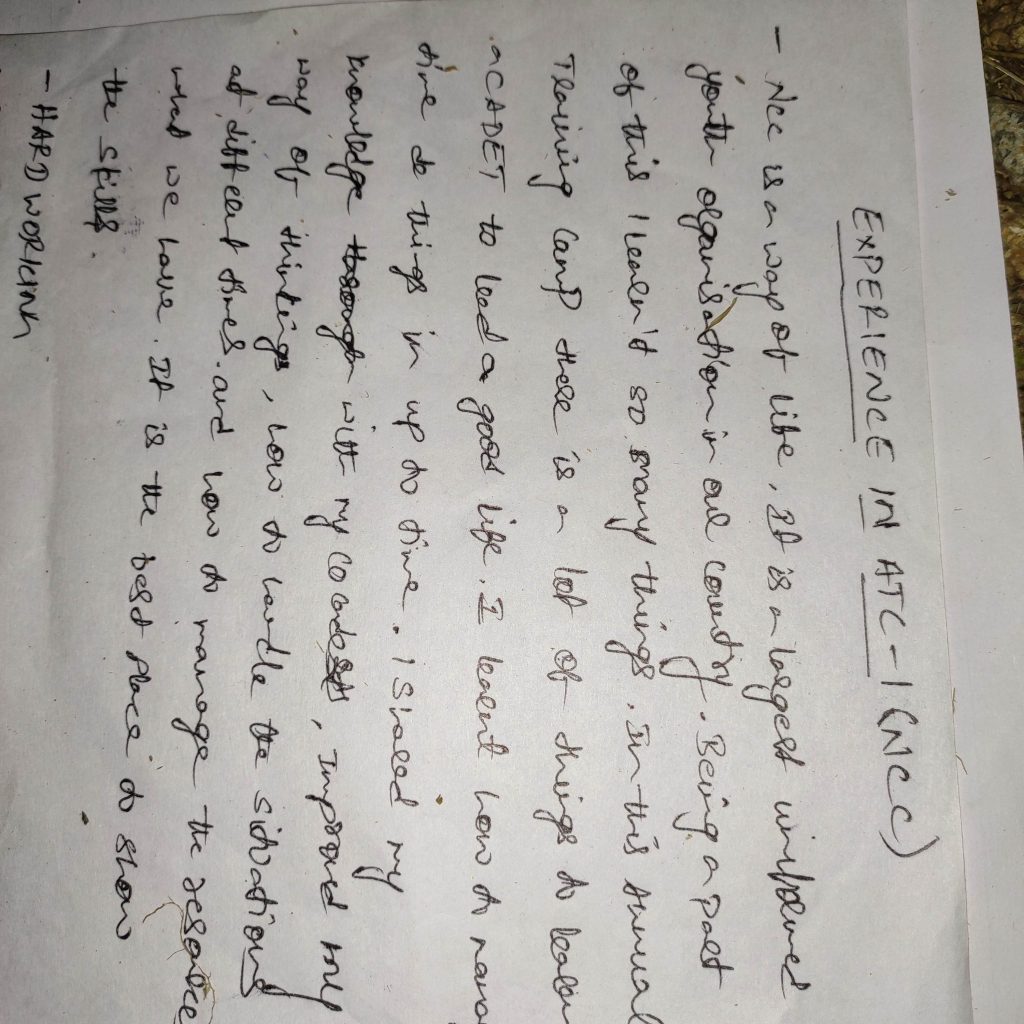 EXPERIENCE IN ATC-1 (NCC)
- Ncc is a way of life. It is a largest uniformed
youth organisation in our country. Being a part
of this I learn't so many things. In this Annual
Training camp there is a lot of things to learn
a CADET to lead a good life. I learnt how to manag
time do things in up to time. I shared my
knowledge with my cocadets, Improved my
way of thinking, how to handle the situations
at different times. and how to manage the resource
what we have. It is the best place to show
the skills.
- HARD WORKING